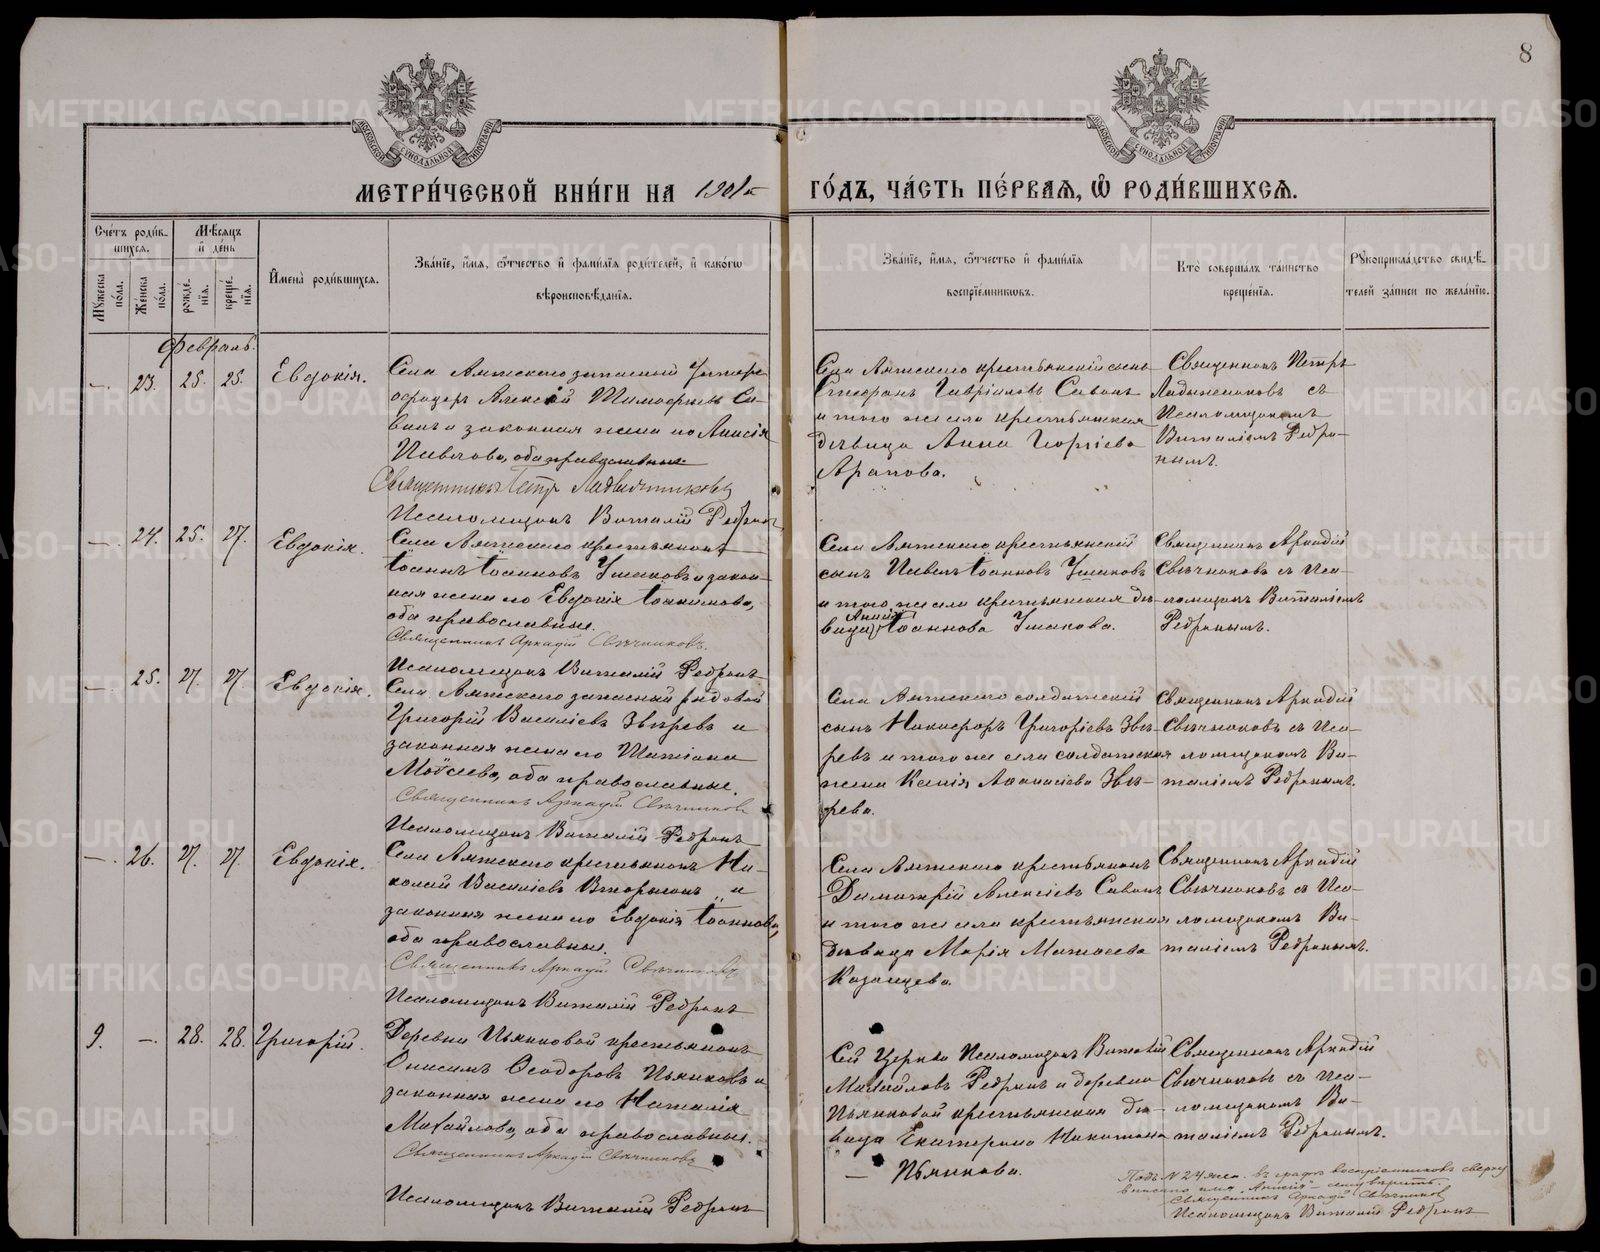 8
МЕТРИ́ЧЕСКОЙ КНИ́ГИ НА 1901й ГО́ДЪ, ЧА́СТЬ ПЕ́РВАЯ, Ѡ РОДИ́ВШИХСЯ.
Сче́тъ роди́вшихся.
Мѣ́сяцъ и де́нь
Му́жеска по́ла.
Же́нска по́ла.
рожде́нїя.
креще́нїя.
И҆мена̀ роди́вшихся.
Зва́нїе, и҆́мя, ѻ҆́тчество и҆ фами́лїя роди́телей, и҆ како́гѡ
вѣроисповѣ́данїя.
Зва́нїе, и҆́мя, ѻ҆́тчество и҆ фами́лїя
воспрїе́мниковъ.
Кто̀ соверша́лъ та́инство
креще́нїя.
Рꙋкоприкла́дство свидѣ́телей за́писи по жела́нїю.
Февраль.
— 23. 25. 25. Евдокія.
Села Аятскаго запасный Унтеръ
офицеръ Алексѣй Тимофеевъ Са-
винъ и законная жена его Анисія
Павлова, оба православные.
Священникъ Петръ
Псаломщикъ Виталій Редринъ
Села Аятскаго крестьянскій сынъ
Стефанъ Гавріиловъ Савинъ
и того же села крестьянская
дѣвица Анна Георгіева
Арапова.
Священникъ Петръ
съ
Псаломщикомъ
Виталіемъ Редри-
нымъ.
— 24. 25. 27. Евдокія.
Села Аятскаго крестьянинъ
Іоаннъ Іоанновъ Ушаковъ и закон-
ная жена его Евдокія Іоакимова,
оба православные.
Священникъ Аркадій Свѣчниковъ.
Псаломщикъ Виталій Редринъ
Села Аятскаго крестьянскій
сынъ Павелъ Іоанновъ Ушаковъ
и того же села крестьянская дѣ-
вица Анисія Іоаннова Ушакова.
Священникъ Аркадій
Свѣчниковъ съ Пса-
ломщикомъ Виталіемъ
Редринымъ.
— 25. 27. 27. Евдокія.
Села Аятскаго запасный рядовой
Григорій Василіевъ Звѣревъ и
законная жена его Татіана
Моѵсеева, оба православные.
Священникъ Аркадій Свѣчниковъ
Псаломщикъ Виталій Редринъ
Села Аятскаго солдатскій
сынъ Никифоръ Григоріевъ Звѣ-
ревъ и того же села солдатская
жена Ксенія Аѳанасіева Звѣ-
рева.
Священникъ Аркадій
Свѣчниковъ съ Пса-
ломщикомъ Ви-
таліемъ Редринымъ.
— 26. 27. 27. Евдокія.
Села Аятскаго крестьянинъ Ни-
колай Василіевъ Вторыгинъ и
законная жена его Евдокія Іоаннова,
оба православные.
Священникъ Аркадій Свѣчниковъ
Псаломщикъ Виталій Редринъ
Села Аятскаго крестьянинъ
Димитрій Алексіевъ Савинъ
и того же села крестьянская
дѣвица Марія Матѳеева
Казанцева.
Священникъ Аркадій
Свѣчниковъ съ Пса-
ломщикомъ Ви-
таліемъ Редринымъ.
9. — 28. 28. Григорій.
Деревни Пьянковой крестьянинъ
Онисимъ Ѳеодоровъ Пьянковъ и
законная жена его Наталія
Михайлова, оба православные.
Священникъ Аркадій Свѣчниковъ
Псаломщикъ Виталій Редринъ
Сей Церкви Псаломщикъ Виталій
Михайловъ Редринъ и деревни
Пьянковой крестьянская дѣ-
вица Екатерина Никитина
— Пьянкова.
Священникъ Аркадій
Свѣчниковъ съ Пса-
ломщикомъ Ви-
таліемъ Редринымъ.
Подъ № 24 жен. въ графѣ воспріемниковъ сверху
вписано имя "Анисія" –
Священникъ Аркадій Свѣчниковъ
Псаломщикъ Виталій Редринъ
METRIKI.GASO-URAL.RU